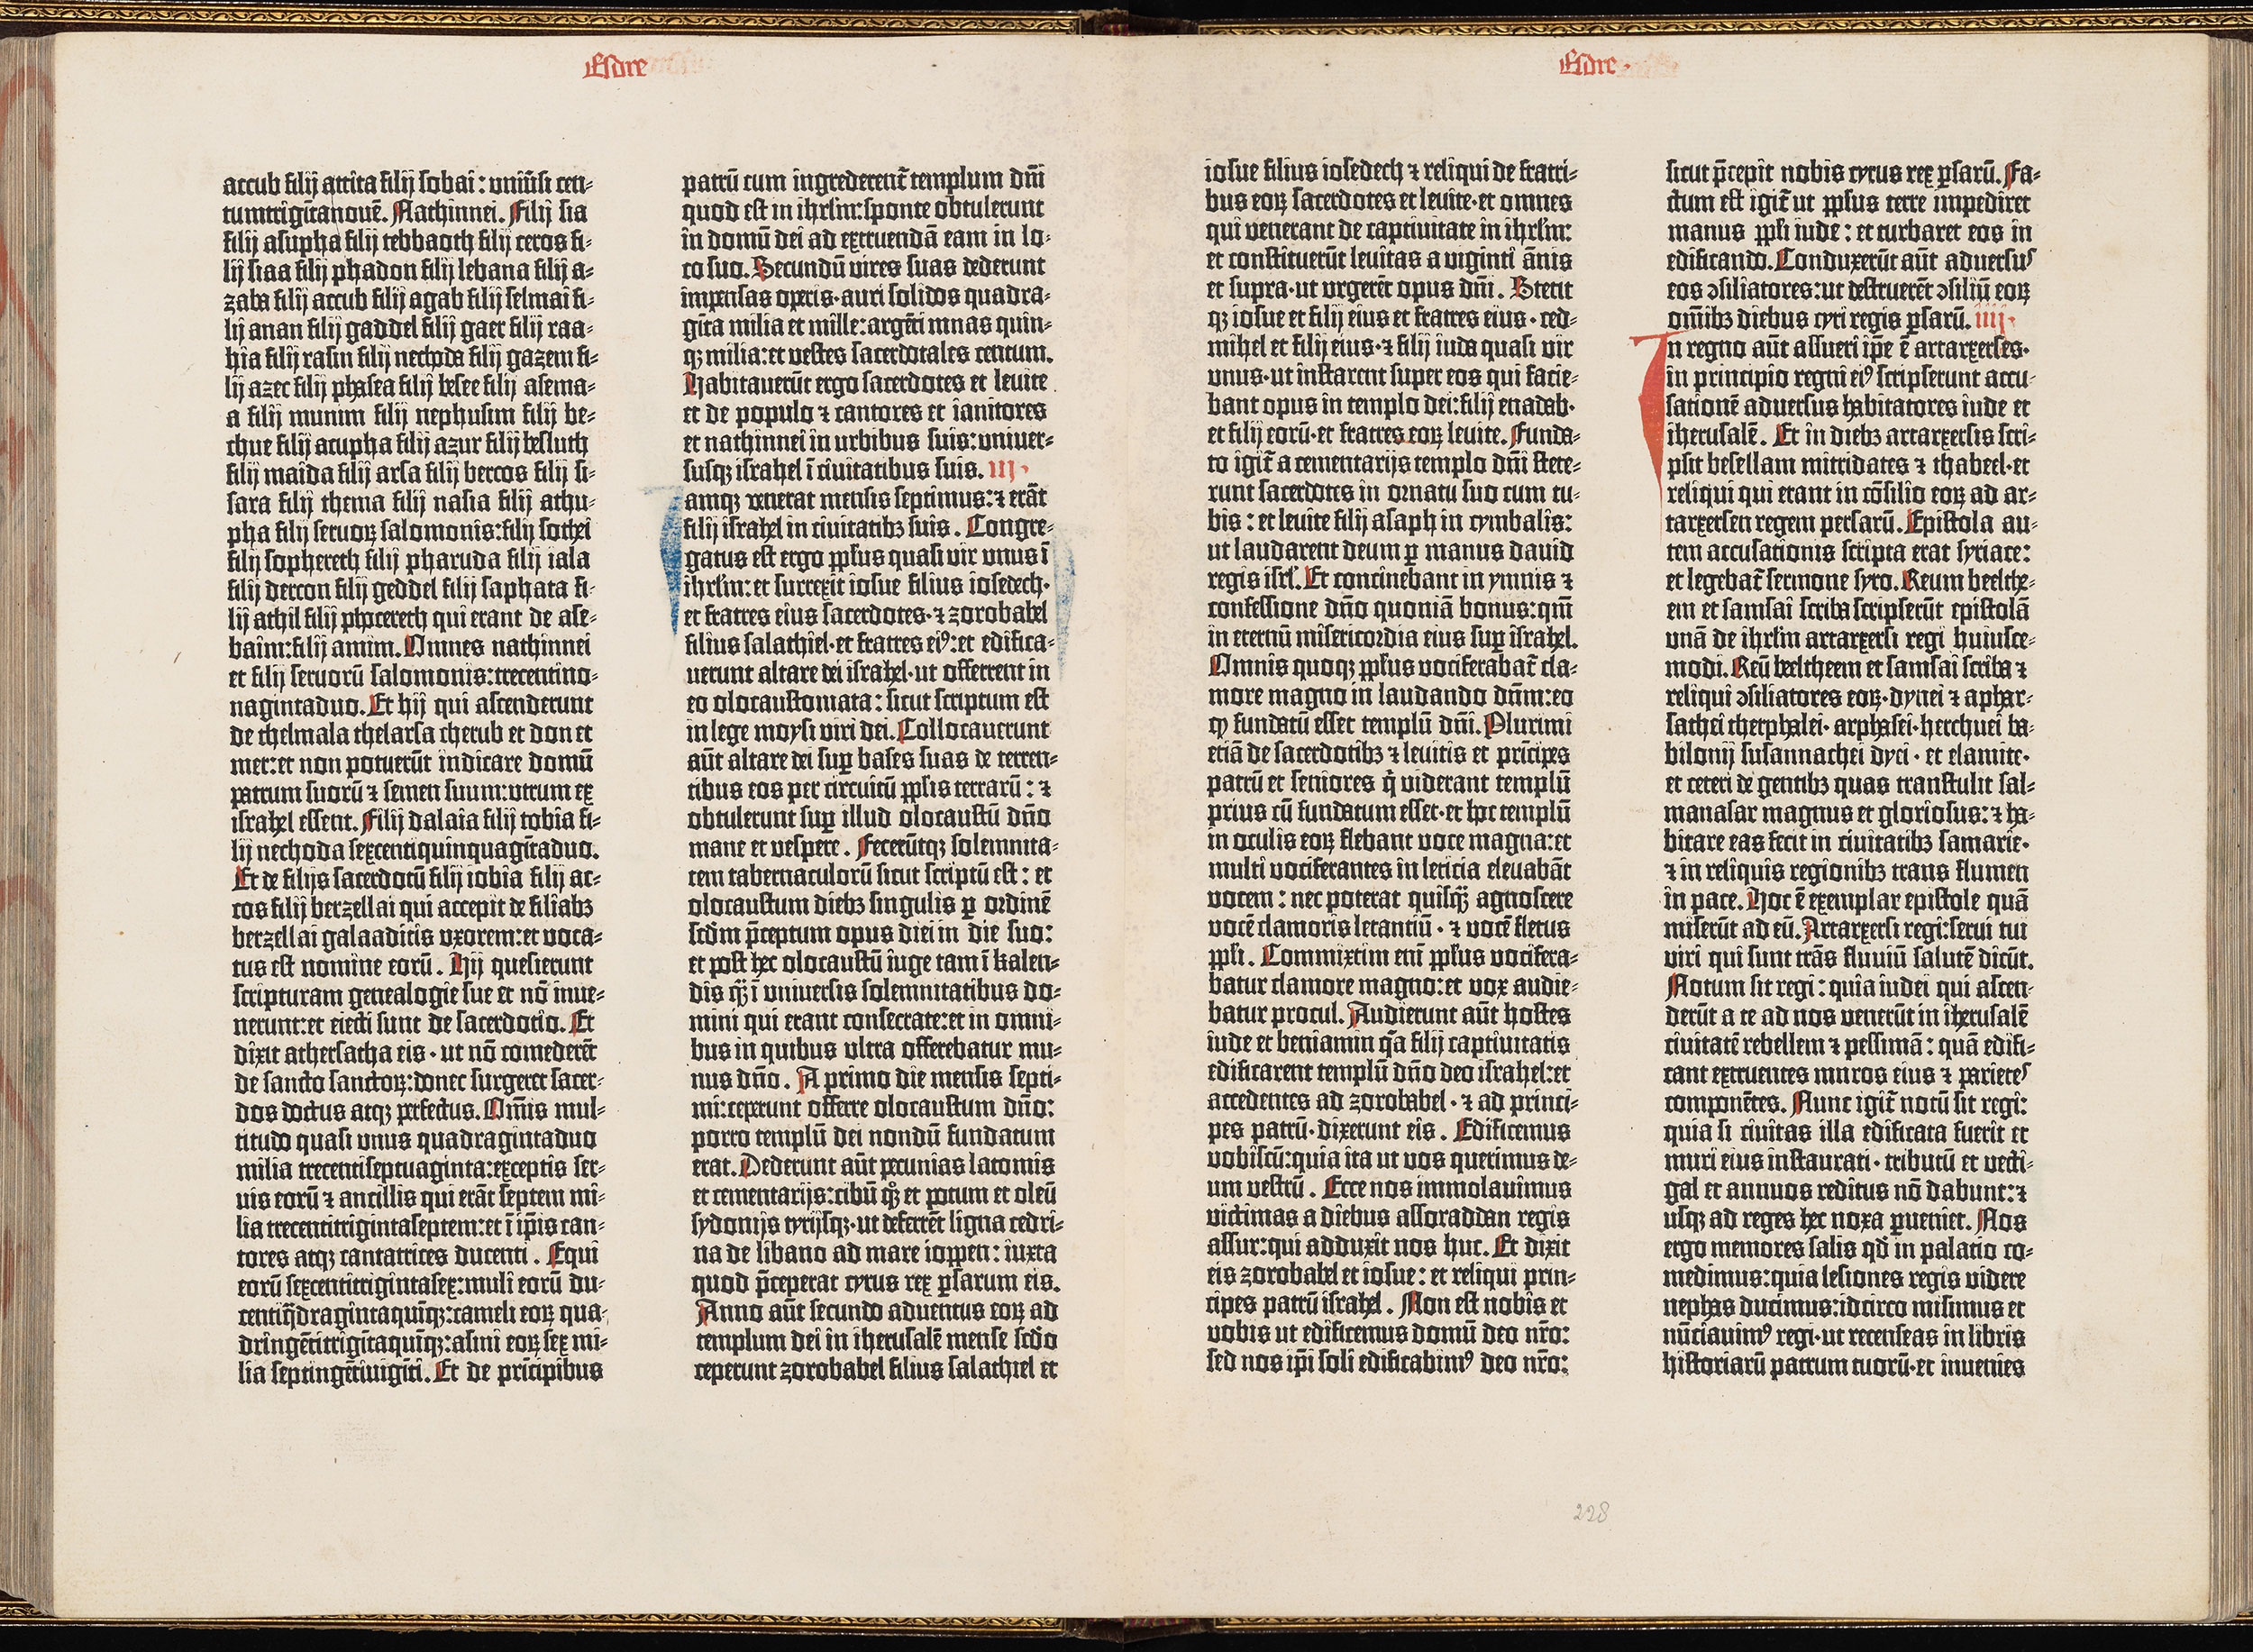 Esdre
accub filij attita filij sobai: vniūsi cen-
tumtrigītanouē. Nathinnei. Filij sia
filij asupha filij tebbaoth filij ceros fi-
lij siaa filij phadon filij lebana filij a-
zaba filij accub filij agab filij selmai fi-
lij anan filij gaddel filij gaer filij raa-
hia filij rasin filij nechoda filij gazem fi-
lij azec filij phasea filij besee filij asema-
a filij munim filij nephusim filij be-
thue filij acupha filij azur filij besluth
filij maida filij arsa filij bercos filij si-
sara filij thema filij nasia filij athu-
pha filij seruoꝝ salomonis: filij sothei
filij sophereth filij pharuda filij iala
filij dercon filij geddel filij saphata fi-
lij athil filij phocereth qui erant de ase-
baim: filij amim. Omnes nathinnei
et filij seruorū salomonis: trecentino-
nagintaduo. Et hij qui ascenderunt
de thelmala thelarsa cherub et don et
mer: et non potuerūt indicare domū
patrum suorū ⁊ semen suum: utrum ex
israhel essent. Filij dalaia filij tobia fi-
lij nechoda sexcentiquinquagītaduo.
Et de filijs sacerdotū filij iobia filij ac-
cos filij berzellai qui accepit de filiabꝫ
berzellai galaaditis vxorem: et voca-
tus est nomine eorū. Hij quesierunt
scripturam genealogie sue et nō inue-
nerunt: et eiecti sunt de sacerdotio. Et
dixit athersatha eis · ut nō comederēt
de sancto sanctoꝝ: donec surgeret sacer-
dos doctus atqꝫ perfectus. Om̄is mul-
titudo quasi vnus quadragintaduo
milia trecentiseptuaginta: exceptis ser-
uis eorū ⁊ ancillis qui erāt septem mi-
lia trecentitrigintaseptem: et ī ip̄is can-
tores atqꝫ cantatrices ducenti. Equi
eorū sexcentitrigintasex: muli eorū du-
centiq̄dragintaquīqꝫ: cameli eoꝝ qua-
dringētitrigītaquīqꝫ: asini eoꝝ sex mi-
lia septingētiuigīti. Et de prīcipibus
patrū cum ingrederent᷑ templum dn̄i
quod est in ihrl̄m: sponte obtulerunt
in domū dei ad extruendā eam in lo-
co suo. Secundū vires suas dederunt
impensas operis · auri solidos quadra-
gīta milia et mille: argēti mnas quin-
qꝫ milia: et vestes sacerdotales centum.
Habitauerūt ergo sacerdotes et leuite
et de populo ⁊ cantores et ianitores
et nathinnei in urbibus suis: vniuer-
susqꝫ israhel ī ciuitatibus suis. III·
Iamqꝫ venerat mensis septimus: ⁊ erāt
filij israhel in ciuitatibꝫ suis. Congre-
gatus est ergo pp̄lus quasi vir vnus ī
ihrl̄m: et surrexit iosue filius iosedech ·
et fratres eius sacerdotes · ⁊ zorobabel
filius salathiel · et fratres eiꝰ: et edifica-
uerunt altare dei israhel · ut offerrent in
eo olocaustomata: sicut scriptum est
in lege moysi viri dei. Collocauerunt
aūt altare dei suꝑ bases suas de terren-
tibus eos per circuitū pp̄lis terrarū: ⁊
obtulerunt suꝑ illud olocaustū dn̄o
mane et vespere. Fecerūtqꝫ solemnita-
tem tabernaculorū sicut scriptū est: et
olocaustum diebꝫ singulis ꝑ ordinē
scd̄m p̄ceptum opus diei in die suo:
et post hec olocaustū iuge tam ī kalen-
dis qꝫ̄ ī vniuersis solemnitatibus do-
mini qui erant consecrate: et in omni-
bus in quibus ultra offerebatur mu-
nus dn̄o. A primo die mensis septi-
mi: ceperunt offerre olocaustum dn̄o:
porro templū dei nondū fundatum
erat. Dederunt aūt pecunias latomis
et cementarijs: cibū qꝫ et potum et oleū
sydonijs tyrijsqꝫ · ut deferrēt ligna cedri-
na de libano ad mare ioppen: iuxta
quod p̄ceperat cyrus rex ꝑsarum eis.
Anno aūt secundo aduentus eoꝝ ad
templum dei in iherusalē mense scd̄o
ceperunt zorobabel filius salathiel et
Esdre·
iosue filius iosedech ⁊ reliqui de fratri-
bus eoꝝ sacerdotes et leuite · et omnes
qui venerant de captiuitate in ihrl̄m:
et constituerūt leuitas a viginti ānis
et supra · ut vrgerēt opus dn̄i. Stetit
qꝫ iosue et filij eius et fratres eius · ced-
mihel et filij eius · ⁊ filij iuda quasi vir
vnus · ut instarent super eos qui facie-
bant opus in templo dei: filij enadab ·
et filij eorū · et fratres eoꝝ leuite. Funda-
to igit᷑ a cementarijs templo dn̄i stete-
runt sacerdotes in ornatu suo cum tu-
bis: et leuite filij asaph in cymbalis:
ut laudarent deum ꝑ manus dauid
regis isrl̄. Et concinebant in ymnis ⁊
confessione dn̄o quoniā bonus: qm̄
in eternū misericordia eius suꝑ israhel.
Omnis quoqꝫ pp̄lus vociferabat᷑ cla-
more magno in laudando dn̄m: eo
ꝙ fundatū esset templū dn̄i. Plurimi
etiā de sacerdotibꝫ ⁊ leuitis et prīcipes
patrū et seniores q̇ viderant templū
prius cū fundatum esset · et hoc templū
in oculis eoꝝ flebant voce magna: et
multi vociferantes in leticia eleuabāt
vocem: nec poterat quisqꝫ̄ agnoscere
vocē clamoris letantiū · ⁊ vocē fletus
pp̄li. Commixtim enī pp̄lus vocifera-
batur clamore magno: et vox audie-
batur procul. Audierunt aūt hostes
iude et beniamin q̄a filij captiuitatis
edificarent templū dn̄o deo israhel: et
accedentes ad zorobabel · ⁊ ad princi-
pes patrū · dixerunt eis. Edificemus
vobiscū: quia ita ut vos querimus de-
um vestrū. Ecce nos immolauimus
victimas a diebus assoraddan regis
assur: qui adduxit nos huc. Et dixit
eis zorobabel et iosue: et reliqui prin-
cipes patrū israhel. Non est nobis et
vobis ut edificemus domū deo nr̄o:
sed nos ip̄i soli edificabimꝰ deo nr̄o:
sicut p̄cepit nobis cyrus rex ꝑsarū. Fa-
ctum est igit᷑ ut pp̄lus terre impediret
manus pp̄li iude: et turbaret eos in
edificando. Conduxerūt aūt aduersus
eos ꝯsiliatores: ut destruerēt ꝯsiliū eoꝝ
om̄ibꝫ diebus cyri regis ꝑsarū. IIII·
In regno aūt assueri ip̄e ē artarxerses ·
in principio regni eiꝰ scripserunt accu-
sationē aduersus habitatores iude et
iherusalē. Et in diebꝫ artarxersis scri-
psit besellam mitridates ⁊ thabeel · et
reliqui qui erant in cōsilio eoꝝ ad ar-
tarxersen regem persarū. Epistola au-
tem accusationis scripta erat syriace:
et legebat᷑ sermone syro. Reum beelthe-
em et samsai scriba scripserūt epistolā
vnā de ihrl̄m artarxersi regi huiusce-
modi. Reū beeltheem et samsai scriba ⁊
reliqui ꝯsiliatores eoꝝ · dynei ⁊ aphar-
sathei therphalei · arphasei · herchuei ba-
bilonij susannachei dyci · et elamite ·
et ceteri de gentibꝫ quas transtulit sal-
manasar magnus et gloriosus: ⁊ ha-
bitare eas fecit in ciuitatibꝫ samarie ·
⁊ in reliquis regionibꝫ trans flumen
in pace. Hoc ē exemplar epistole quā
miserūt ad eū. Artarxersi regi: serui tui
viri qui sunt trās fluuiū salutē dicūt.
Notum sit regi: quia iudei qui ascen-
derūt a te ad nos venerūt in iherusalē
ciuitatē rebellem ⁊ pessimā: quā edifi-
cant extruentes muros eius ⁊ parietes
componētes. Nunc igit᷑ notū sit regi:
quia si ciuitas illa edificata fuerit et
muri eius instaurati · tributū et vecti-
gal et annuos reditus nō dabunt: ⁊
usqꝫ ad reges hec noxa ꝑueniet. Nos
ergo memores salis qd̄ in palatio co-
medimus: quia lesiones regis videre
nephas ducimus: idcirco misimus et
nūciauimꝰ regi · ut recenseas in libris
historiarū patrum tuorū · et inuenies
228